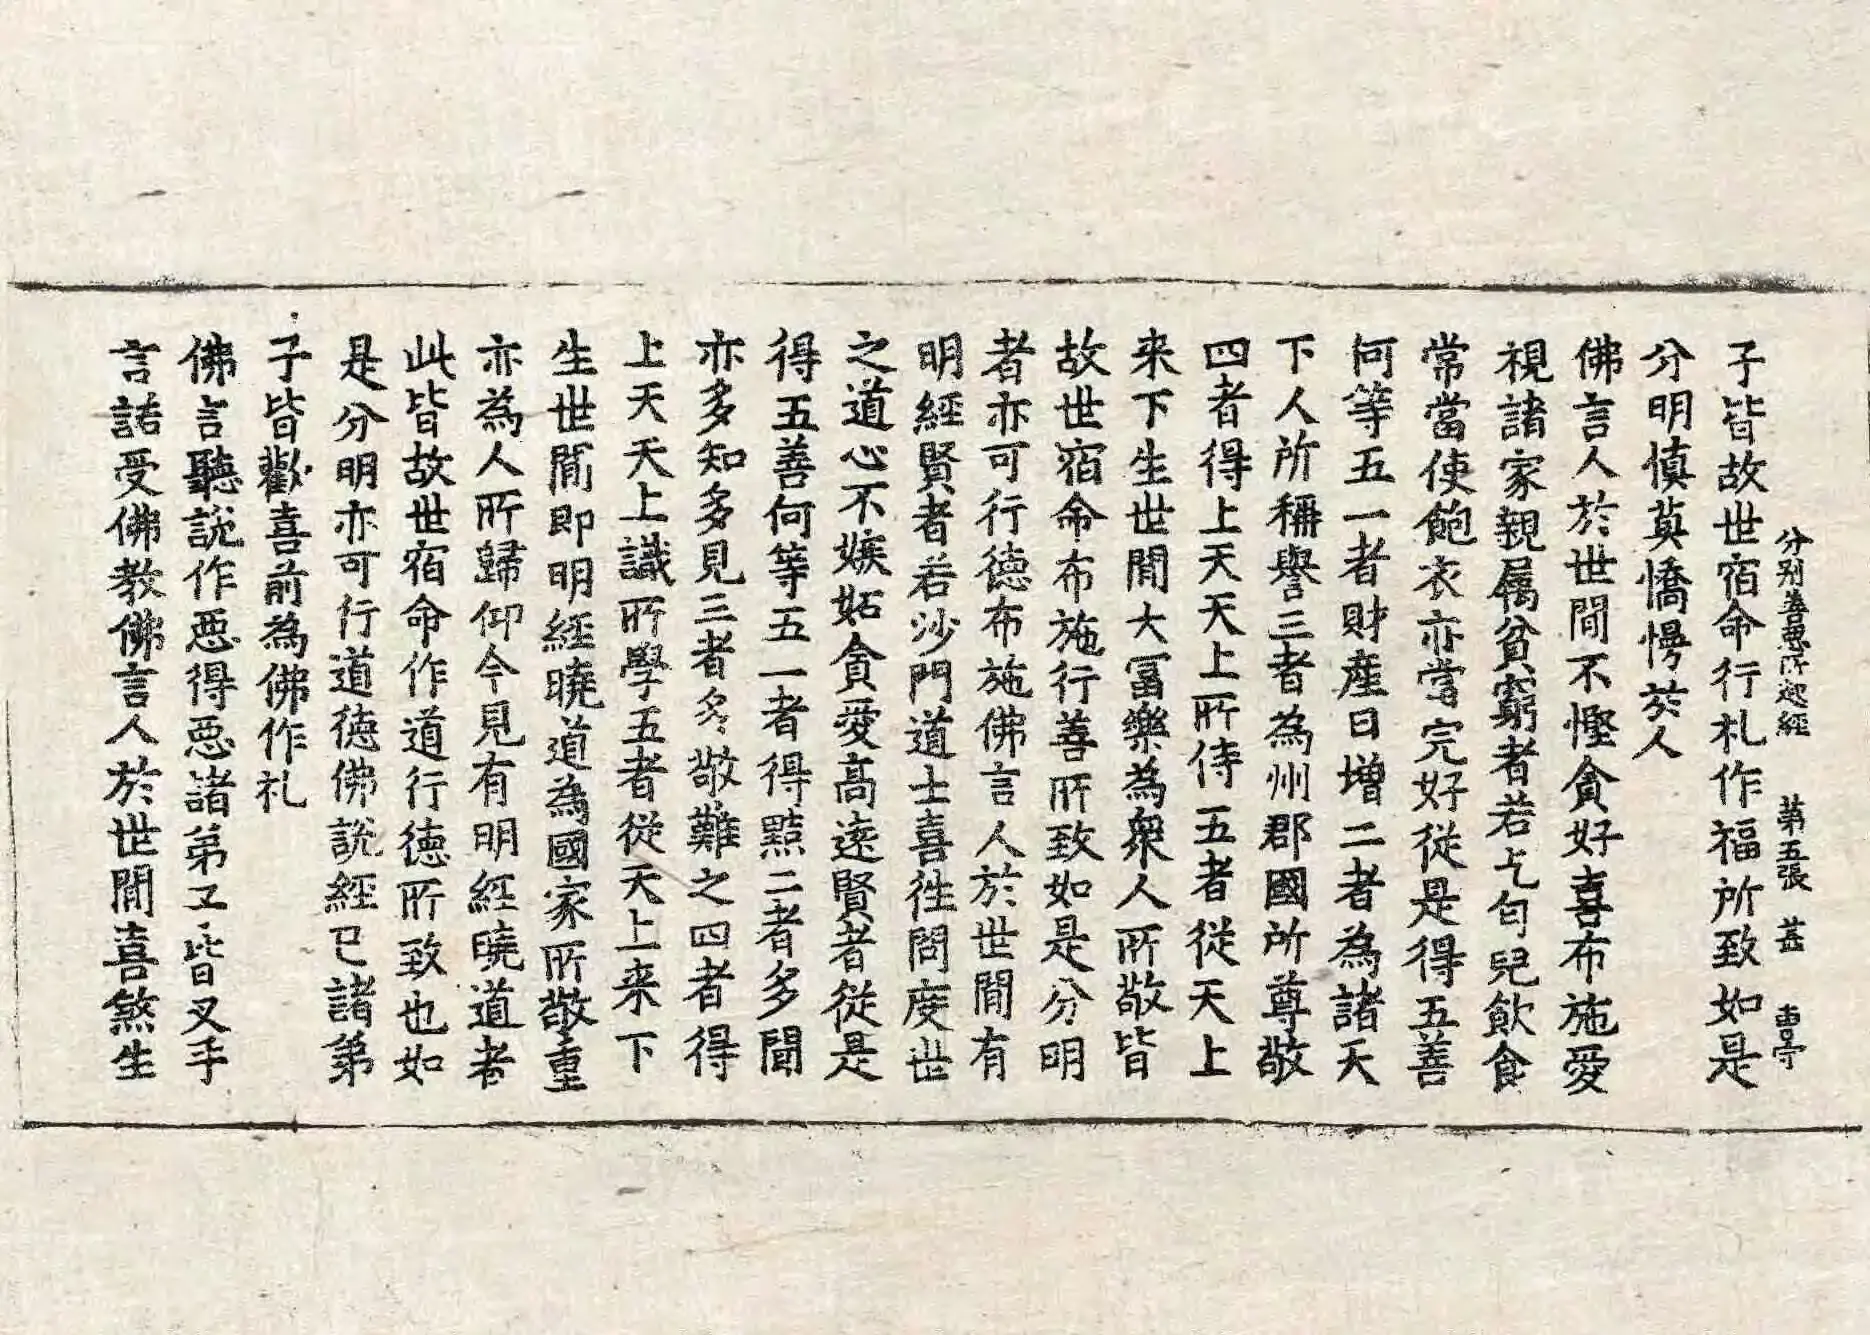 分别善惡所起經　　第五張　甚
子皆故世宿命行礼作福所致如是
分明慎莫憍慢於人
佛言人於世間不慳貪好喜布施愛
視諸家親属貧窮者若乞匄兒飲食
常當使飽衣亦當完好從是得五善
何等五一者財產日增二者為諸天
下人所稱譽三者為州郡國所尊敬
四者得上天天上所侍五者從天上
来下生世間大冨樂為衆人所敬皆
故世宿命布施行善所致如是分明
者亦可行德布施佛言人於世間有
明經賢者若沙門道士喜徃問度世
之道心不嫉妬貪愛髙遠賢者從是
得五善何等五一者得黠二者多聞
亦多知多見三者多敬難之四者得
上天天上識所學五者從天上来下
生世間即明經曉道為國家所敬重
亦為人所歸仰今見有明經曉道者
此皆故世宿命作道行德所致也如
是分明亦可行道德佛說經已諸弟
子皆歡喜前為佛作礼
佛言聽說作惡得惡諸弟子皆叉手
言諾受佛教佛言人於世間喜煞生